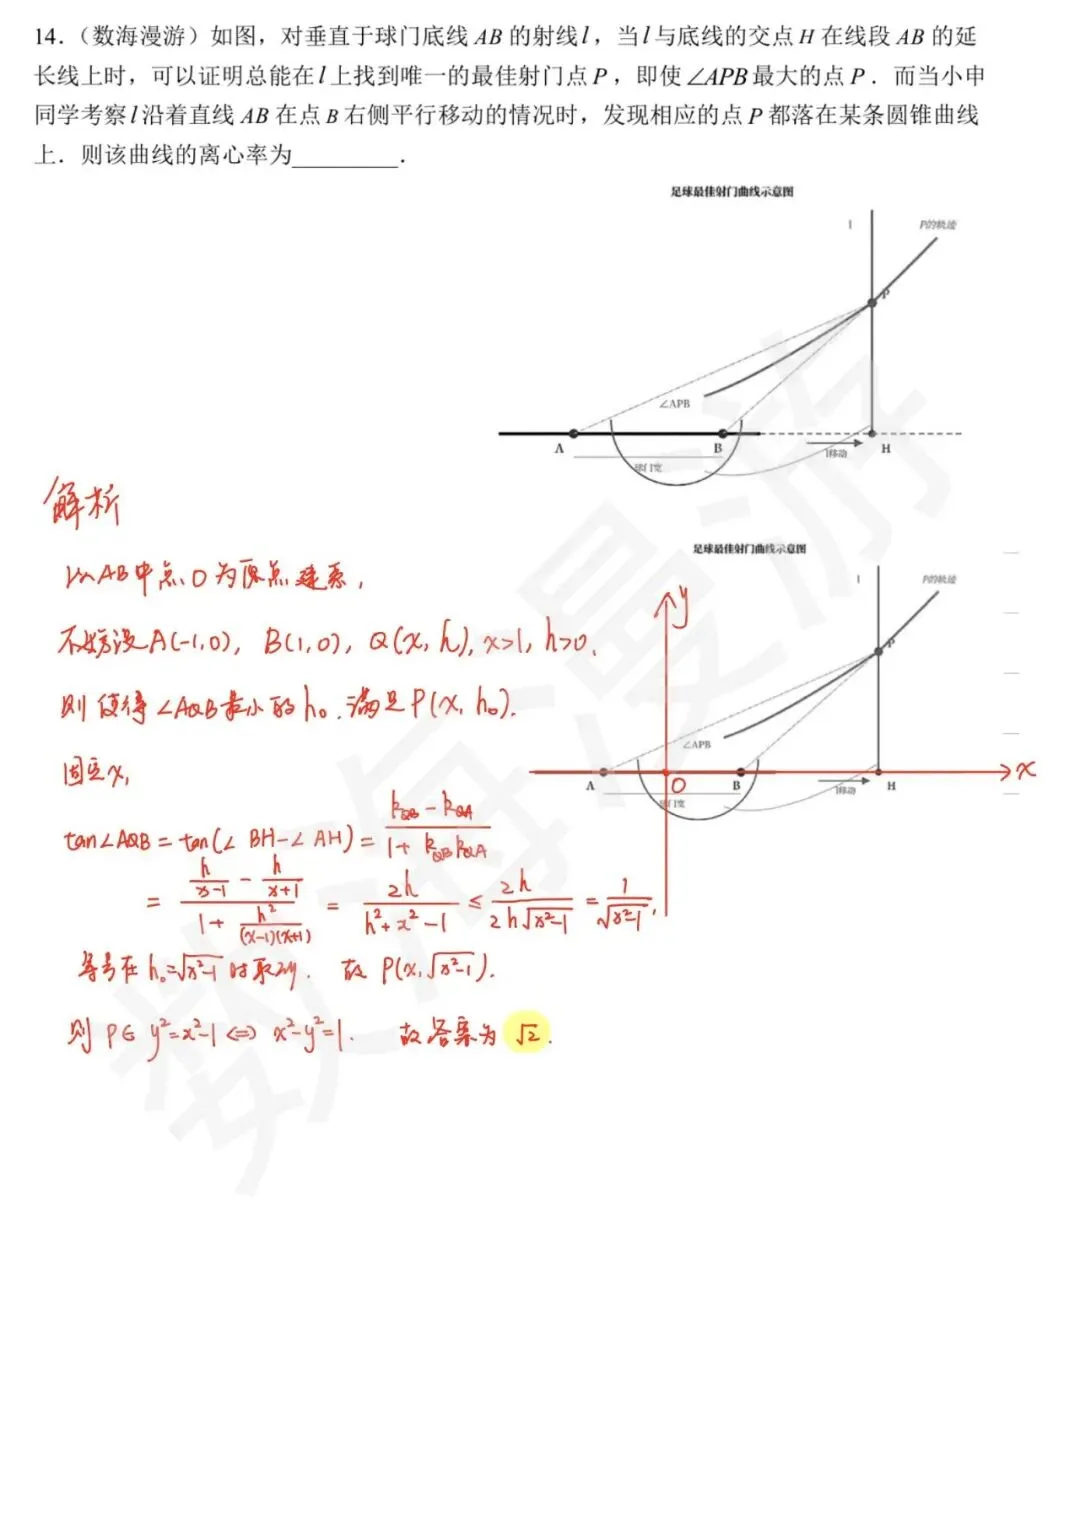 14.（数海漫游）如图，对垂直于球门底线 AB 的射线 l，当 l 与底线的交点 H 在线段 AB 的延
长线上时，可以证明总能在 l 上找到唯一的最佳射门点 P，即使 ∠APB 最大的点 P．而当小申
同学考察 l 沿着直线 AB 在点 B 右侧平行移动的情况时，发现相应的点 P 都落在某条圆锥曲线
上．则该曲线的离心率为________．
足球最佳射门曲线示意图
l P的轨迹
P
∠APB
A B H
球门宽 l移动
解析
足球最佳射门曲线示意图
以AB中点O为原点建系,
l P的轨迹
y
不妨设A(-1,0), B(1,0), Q(x,h), x>1, h>0,
P
则使得∠AQB最小的h₀,满足P(x,h₀).
∠APB
固定x,
x
A O B H
球门宽 l移动
tan∠AQB = tan(∠BH-∠AH) = \frac{k_{QB}-k_{QA}}{1+k_{QB}k_{QA}}
= \frac{\frac{h}{x-1}-\frac{h}{x+1}}{1+\frac{h²}{(x-1)(x+1)}} = \frac{2h}{h²+x²-1} ≤ \frac{2h}{2h\sqrt{x²-1}} = \frac{1}{\sqrt{x²-1}},
等号在 h₀=√(x²-1) 时取到. 故 P(x,√(x²-1)).
则 P∈ y²=x²-1 ⟺ x²-y²=1. 故答案为 √2.
数海漫游